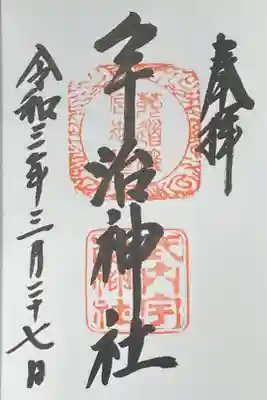 奉拝
宇治神社
令和三年三月二十七日